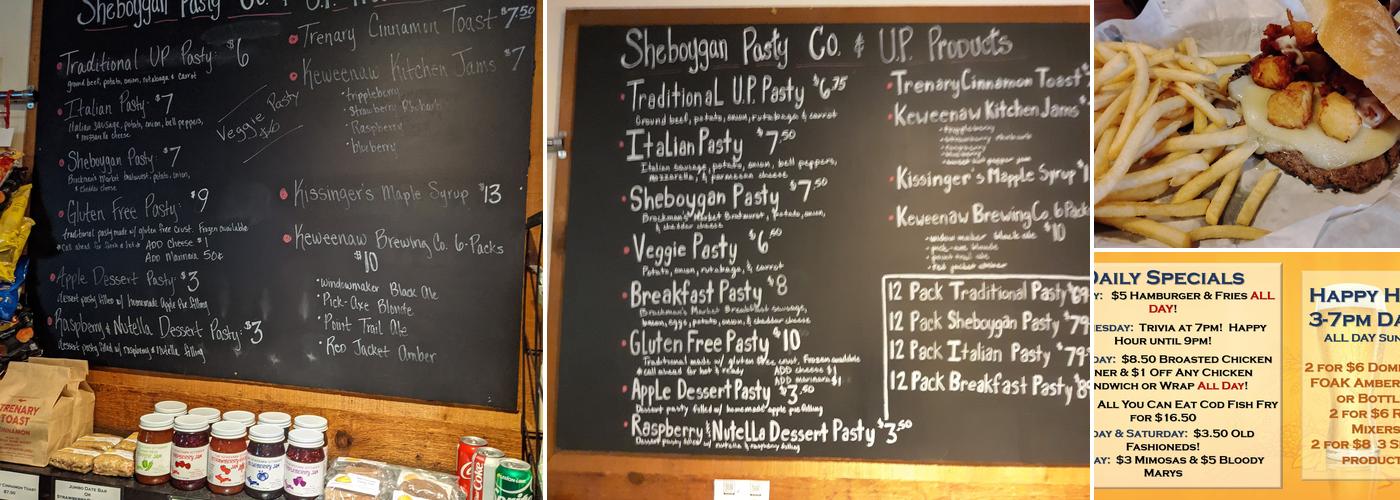 Sheboygan Pasty Co. &
Traditional UP Pasty: $6
ground beef, potato, onion, rutabaga & carrot
Italian Pasty: $7
Italian sausage, potato, onion, bell peppers,
& mozzarella cheese
Veggie Pasty $6
Sheboygan Pasty: $7
Brockman's Market bratwurst, potato, onion,
& cheddar cheese
Gluten Free Pasty: $9
traditional pasty made w/ gluten free crust. Frozen available
ADD Cheese $1
ADD Marinara 50¢
Apple Dessert Pasty: $3
dessert pasty filled w/ homemade apple pie filling
Raspberry & Nutella Dessert Pasty: $3
dessert pasty filled w/ raspberry & nutella filling
Trenary Cinnamon Toast $7.50
Keweenaw Kitchen Jams $7
• thimbleberry
• Strawberry Rhubarb
• Raspberry
• blueberry
Kissinger's Maple Syrup $13
Keweenaw Brewing Co. 6-Packs
$10
• Widowmaker Black Ale
• Pick-Axe Blonde
• Point Trail Ale
• Red Jacket Amber
TRENARY
TOAST
CINNAMON
JUMBO DATE BAR
OR
Coke
Sheboygan Pasty Co. & U.P. Products
Traditional U.P. Pasty $6.75
Ground beef, potato, onion, rutabaga & carrot
Italian Pasty $7.50
Italian sausage, potato, onion, bell peppers,
mozzarella, & parmesan cheese
Sheboygan Pasty $7.50
Brockman's Market Bratwurst, potato, onion,
& cheddar cheese
Veggie Pasty $6.50
Potato, onion, rutabaga, & carrot
Breakfast Pasty $8
Brockman's Market Breakfast sausage,
bacon, eggs, potato, onion, & cheddar cheese
Gluten Free Pasty $10
Traditional made w/ gluten free crust, Frozen available
* call ahead for hot & ready ADD cheese $1
ADD marinara $1
Apple Dessert Pasty $3.50
Dessert pasty filled w/ homemade apple pie filling
Raspberry & Nutella Dessert Pasty $3.50
Dessert pasty filled w/ nutella & raspberry filling
Trenary Cinnamon Toast
Keweenaw Kitchen Jams
Kissinger's Mapple Syrup
Keweenaw Brewing Co. 6 Packs
$10
• widow maker black ale
• pick-axe blonde
• point trail ale
• Red jacket amber
12 Pack Traditional Pasty
12 Pack Sheboygan Pasty $79
12 Pack Italian Pasty $79
12 Pack Breakfast Pasty
DAILY SPECIALS
Y: $5 HAMBURGER & FRIES ALL
DAY!
ESDAY: TRIVIA AT 7PM! HAPPY
HOUR UNTIL 9PM!
DAY: $8.50 BROASTED CHICKEN
NER & $1 OFF ANY CHICKEN
NDWICH OR WRAP ALL DAY!
ALL YOU CAN EAT COD FISH FRY
FOR $16.50
DAY & SATURDAY: $3.50 OLD
FASHIONEDS!
AY: $3 MIMOSAS & $5 BLOODY
MARYS
HAPPY H
3-7PM DA
ALL DAY SUN
2 FOR $6 DOM
FOAK AMBER
OR BOTTL
2 FOR $6 R
MIXERS
2 FOR $8 3 S
PRODUCT